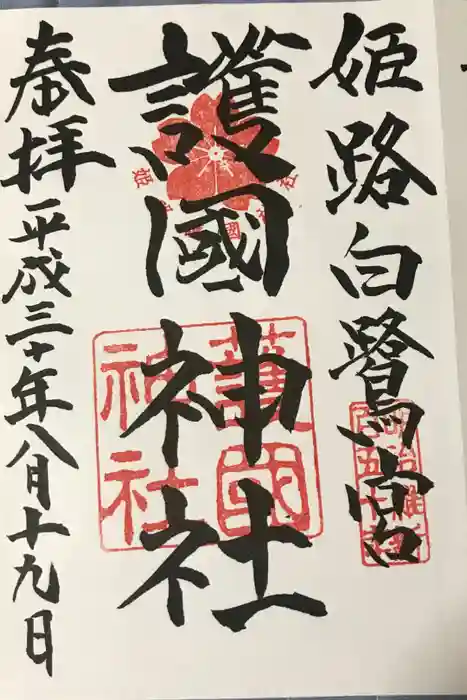 姫路白鷺宮
護國神社
護國
神社
奉拝
平成三十年八月十九日